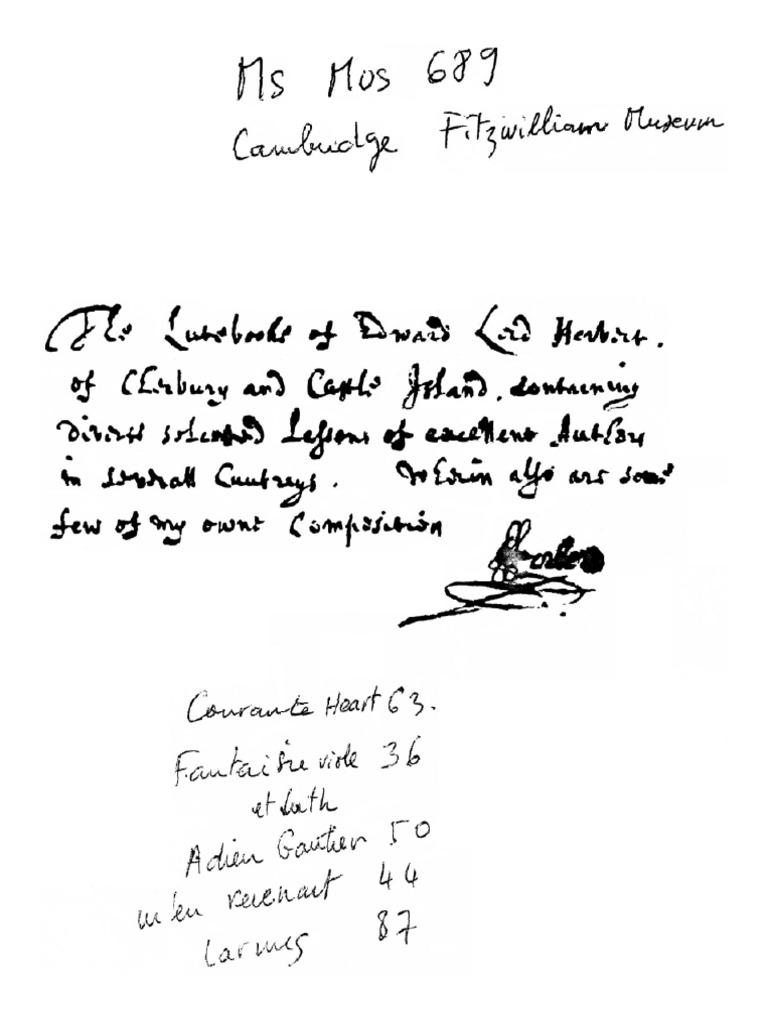 Ms Mus 689
Cambridge Fitzwilliam Museum
The Lutebooke of Edward Lord Herbert.
of Cherbury and Castle Island. contaening
divers selected Lessons of excellent Authors
in severall Cuntreys. wherin also are some
few of my owne Composition
Courante Heart 63.
Fantaisie viole 36
et Luth
Adieu Gautier 50
m'en revenant 44
Larmes 87